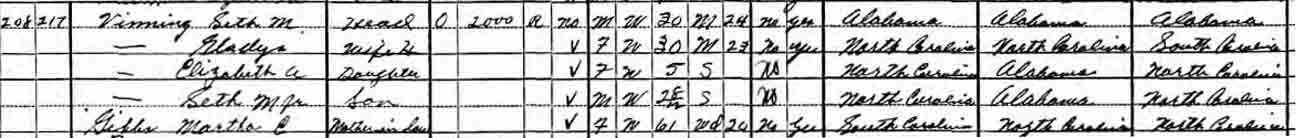 208 217 Vinning Seth M. Head O 2000 R no M W 30 M 24 no yes Alabama Alabama Alabama
— Gladys Wife H V F W 30 M 23 no yes North Carolina North Carolina South Carolina
— Elizabeth A Daughter V F W 5 S no North Carolina Alabama North Carolina
— Seth M Jr Son V M W S no North Carolina Alabama North Carolina
Martha E Mother in law V F W 61 Wd 20 no yes South Carolina North Carolina North Carolina